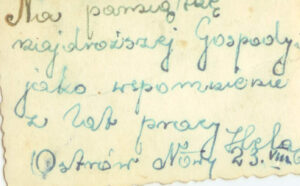 Na pamiątkę
najdroższej Gospody
jako wspomnienie
z lat pracy
Hela
Ostrów Nowy 23.VIII